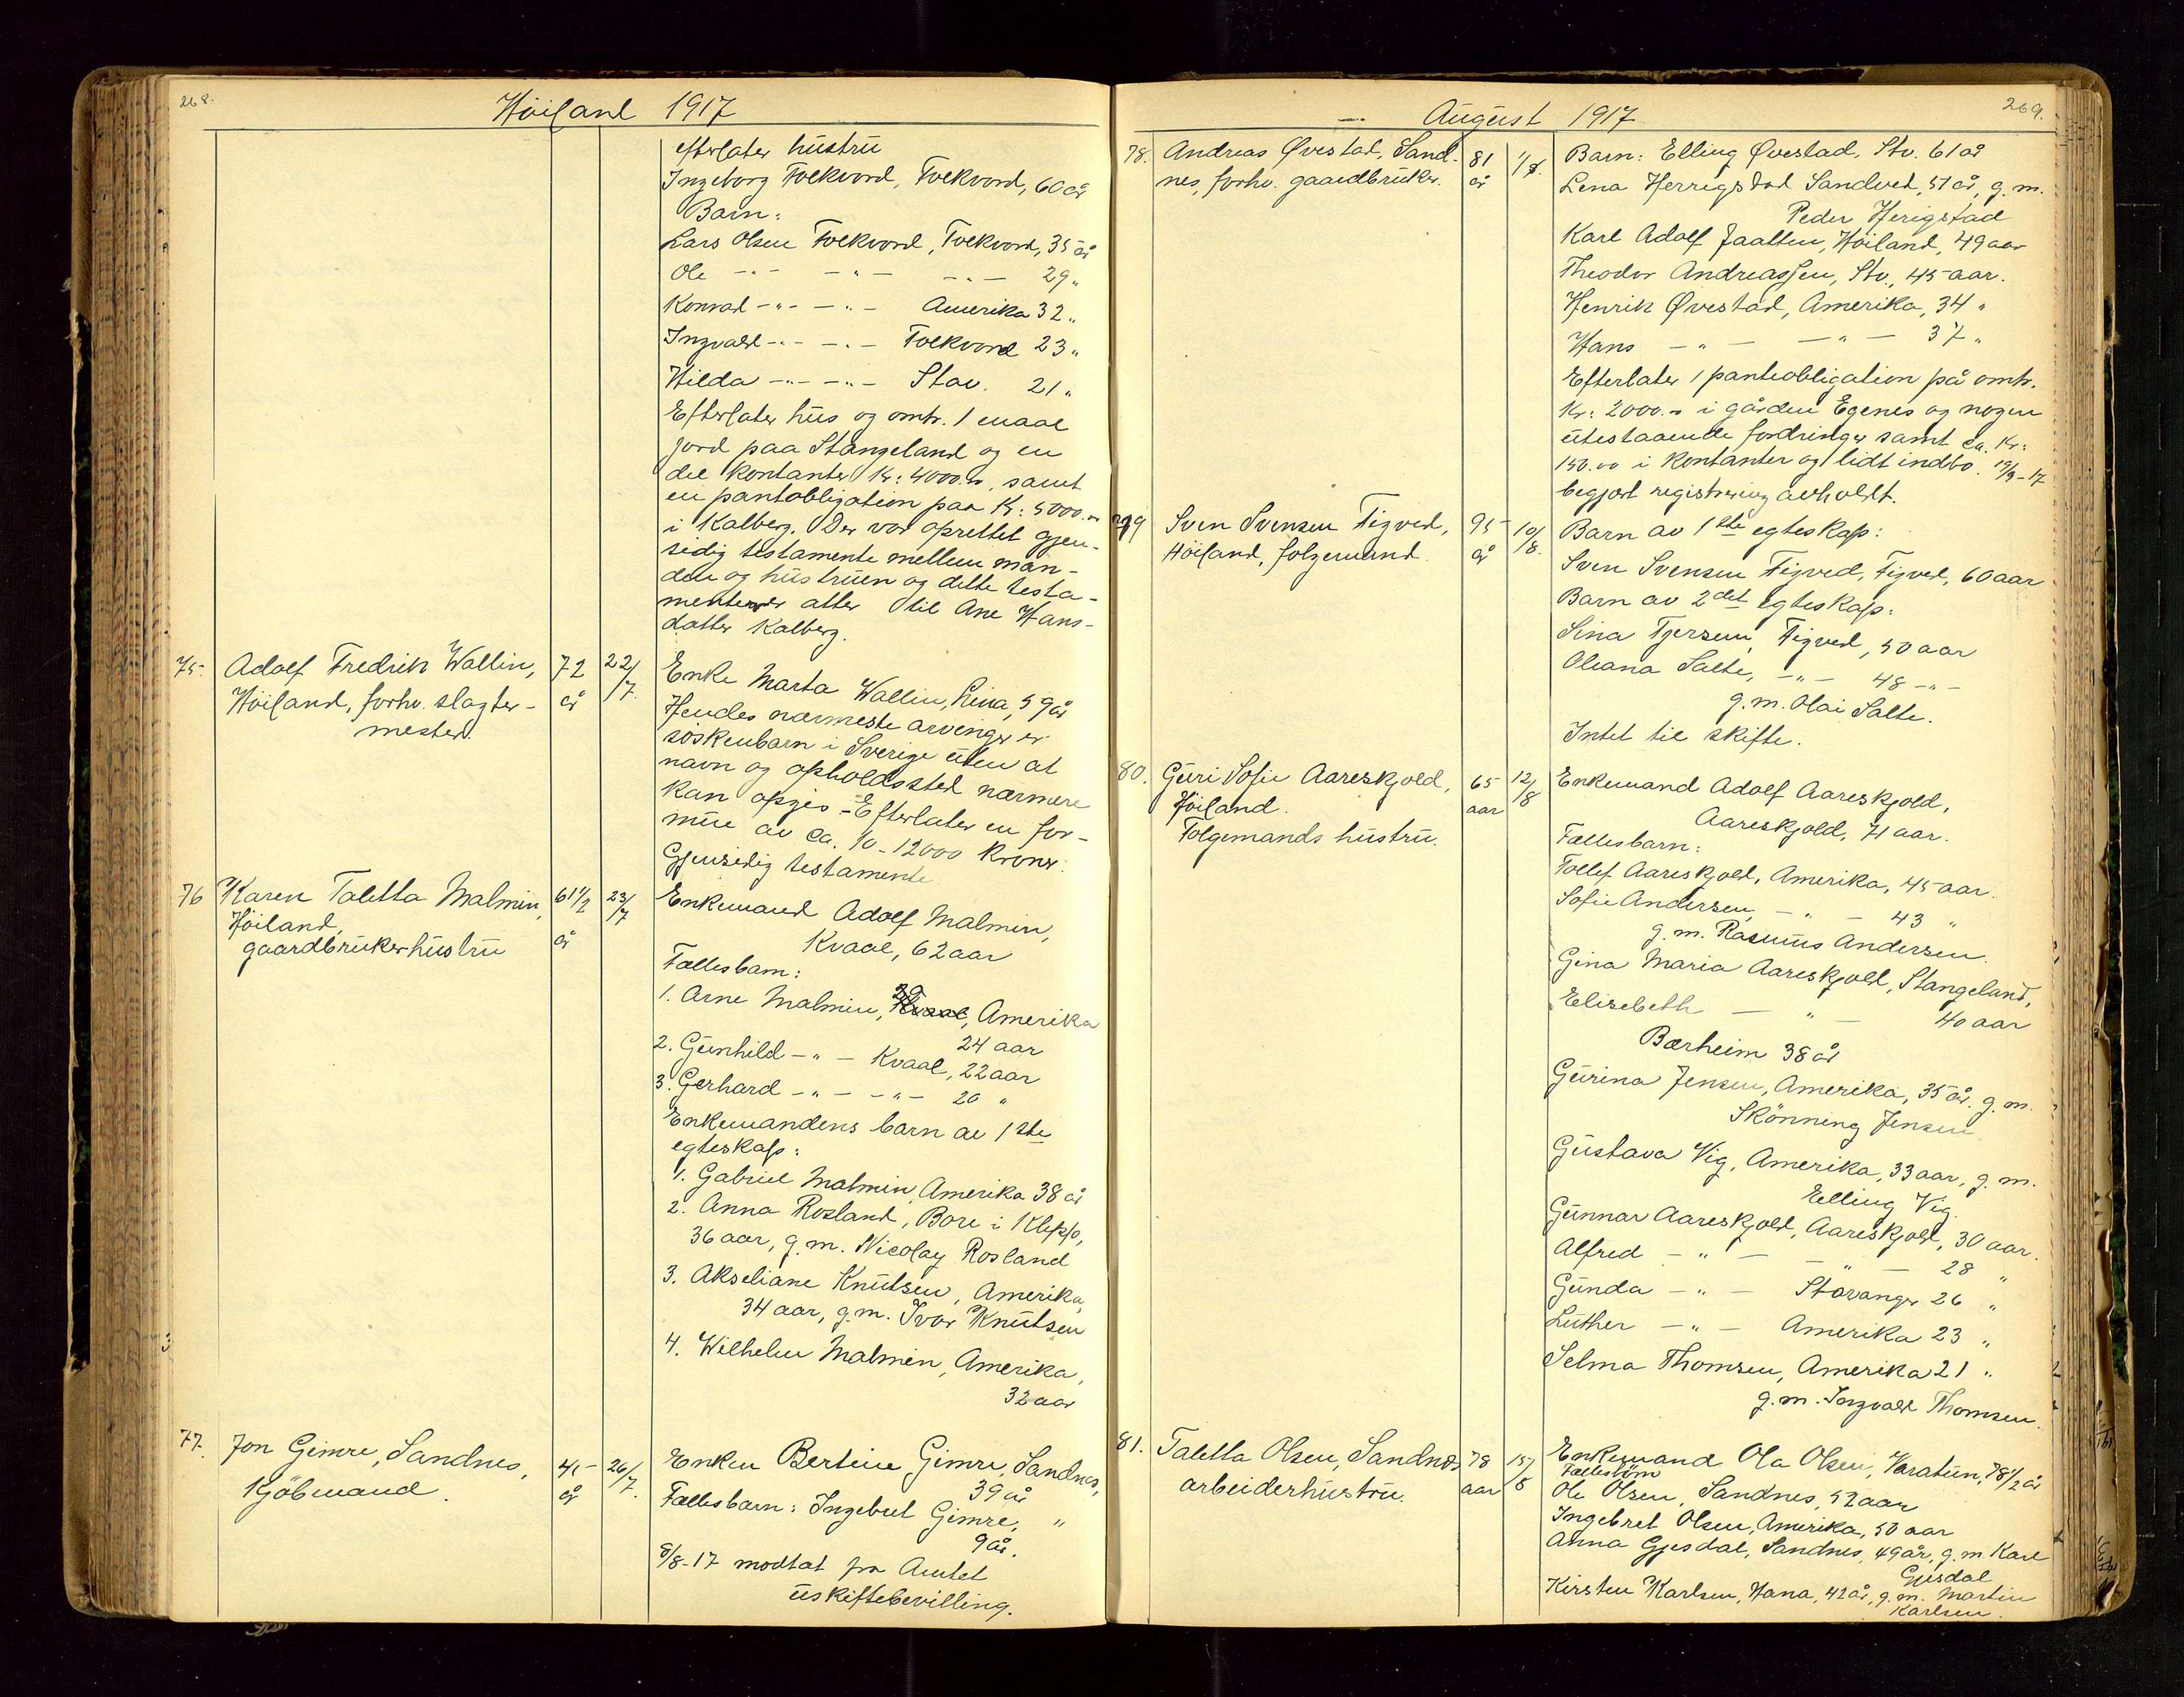 268.
Höiland 1917
efterlater hustru
Ingeborg Folkvord, Folkvord, 60 år
Barn:
Lars Olsen Folkvord, Folkvord, 35 år
Ole -"- -"- -"- 29 "
Konrad -"- -"- Amerika 32 "
Ingvald -"- -"- Folkvord 23 "
Hilda -"- -"- Stav. 21 "
Efterlater hus og omtr. 1 maal
jord paa Stangeland og en
del kontanter Kr: 4000.00, samt
en pantobligation paa Kr: 5000.00
i Kalberg. Der var oprettet gjen-
sidig testamente mellem man-
den og hustruen og dette testa-
menterer alter til Ane Hans-
datter Kalberg.
75. Adolf Fredrik Wallin, 72 22/
Höiland, forhv. slagter- år 7.
mester.
Enke Marta Wallin, Lina, 59 år
Hendes nærmeste arvinger er
söskenbarn i Sverige uten at
navn og opholdssted nærmere
kan opgis - Efterlater en for-
mue av ca. 10-12000 kroner.
Gjensidig testamente
76 Karen Taletta Malmin, 61 1/2 23/
Höiland, 7
gaardbrukerhustru år
Enkemand Adolf Malmin,
Kvaal, 62 aar
Fællesbarn:
1. Arne Malmin, Kvaal, Amerika
24 aar
2. Gunhild -"- Kvaal, 22 aar
3. Gerhard -"- -"- 20 "
Enkemandens barn av 1ste
egteskap:
1. Gabriel Malmin, Amerika 38 år
2. Anna Rosland, Bore i Klepp,
36 aar, g.m. Nicolay Rosland
3. Akseliane Knutsen, Amerika,
34 aar, g.m. Ivar Knutsen
4. Wilhelm Malmin, Amerika,
32 aar
77. Jon Gimre, Sandnes, 41 26/
Kjöbmand. år 7.
Enken Bertine Gimre, Sandnes,
39 år
Fællesbarn: Ingebret Gimre, "
9 år.
8/8-17 modtat fra Amtet
uskiftebevilling.
269.
August 1917
78. Andreas Øvestad, Sand- 81 1/8.
nes, forhv. gaardbruker. år
Barn: Elling Øvestad, Stv. 61 år
Lena Herrigstad Sandved, 51 år, g.m.
Peder Herigstad
Karl Adolf Jaatten, Höiland, 49 aar
Theodor Andreassen, Stv., 45 aar.
Henrik Øvestad, Amerika, 34 "
Hans -"- -"- 37 "
Efterlater 1 panteobligation på omtr.
Kr: 2000.00 i gården Egenes og nogen
utestaaende fordringer samt ca. Kr:
150.00 i kontanter og lidt indbo. 19/9-17
begjært registrering avholdt.
79 Sven Svensen Figved, 95 10/
Höiland, folgemand år 8.
Barn av 1ste egteskap:
Sven Svensen Figved, Figved, 60 aar
Barn av 2det egteskap:
Sina Tjersen, Figved, 50 aar
Oleana Salte, -"- 48 -"-
g.m. Olai Salte.
Intet til skifte.
80. Guri Sofie Aareskjold, 65 12/
Höiland. aar 8
Folgemands hustru.
Enkemand Adolf Aareskjold,
Aareskjold, 71 aar.
Fællesbarn:
Tollef Aareskjold, Amerika, 45 aar.
Sofie Andersen, -"- 43 "
g.m. Rasmus Andersen.
Gina Maria Aareskjold, Stangeland,
40 aar
Elisebeth -"-
Bærheim 38 år
Gurina Jensen, Amerika, 35 år. g.m.
Skönning Jensen
Gustava Vig, Amerika, 33 aar, g.m.
Elling Vig.
Gunnar Aareskjold, Aareskjold, 30 aar.
Alfred -"- -"- 28 "
Gunda -"- Stavanger 26 "
Luther -"- Amerika 23 "
Selma Thomsen, Amerika 21 "
g.m. Ingvald Thomsen.
81. Taletta Olsen, Sandnes 78 15/
arbeiderhustru. aar 8
Enkemand Ola Olsen, Varatun, 78 1/2 år
Fællesbörn
Ole Olsen, Sandnes, 52 aar
Ingebret Olsen, Amerika, 50 aar
Anna Gjesdal, Sandnes, 49 år, g.m Karl
Gjesdal
Kirsten Karlsen, Hana, 42 år, g.m. Martin
Karlsen.